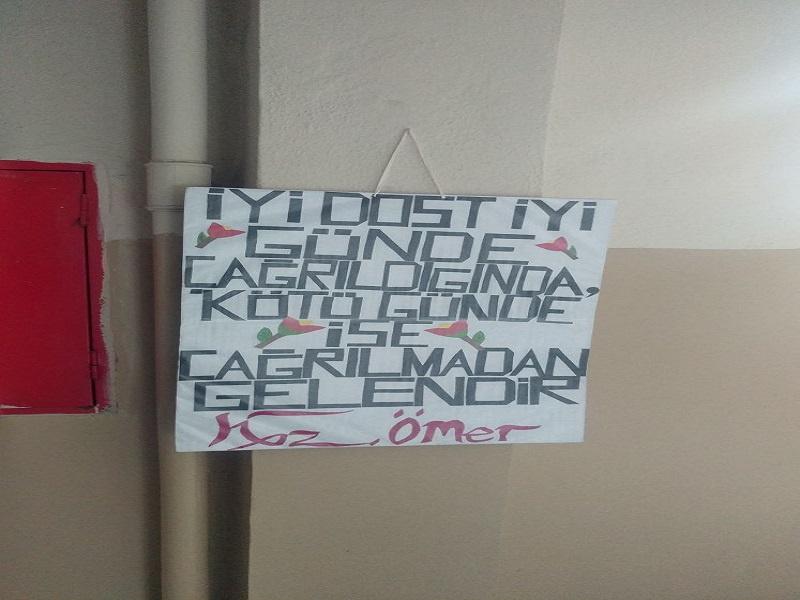 İYİ DOST İYİ
GÜNDE
ÇAĞRILDIĞINDA,
KÖTÜ GÜNDE
İSE
ÇAĞRILMADAN
GELENDİR
Hz. Ömer